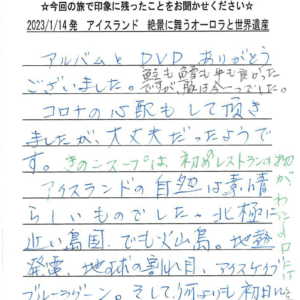 ☆今回の旅で印象に残ったことをお聞かせください☆
2023/1/14発 アイスランド 絶景に舞うオーロラと世界遺産
アルバムと DVD ありがとう
ございました。
鮭も鱈も牛も良かった
ですが、 は今一つでした。
コロナの心配もして頂き
ましたが、大丈夫だったようで
す。きのこスープは初めレストランの
がわにお口に
アイスランドの自然は素晴
らしいものでした。北極に
近い島国、でも火山島。地熱
発電、地球の割れ目、アイスケイブ
ブルーラグーン。そして何よりも初日に